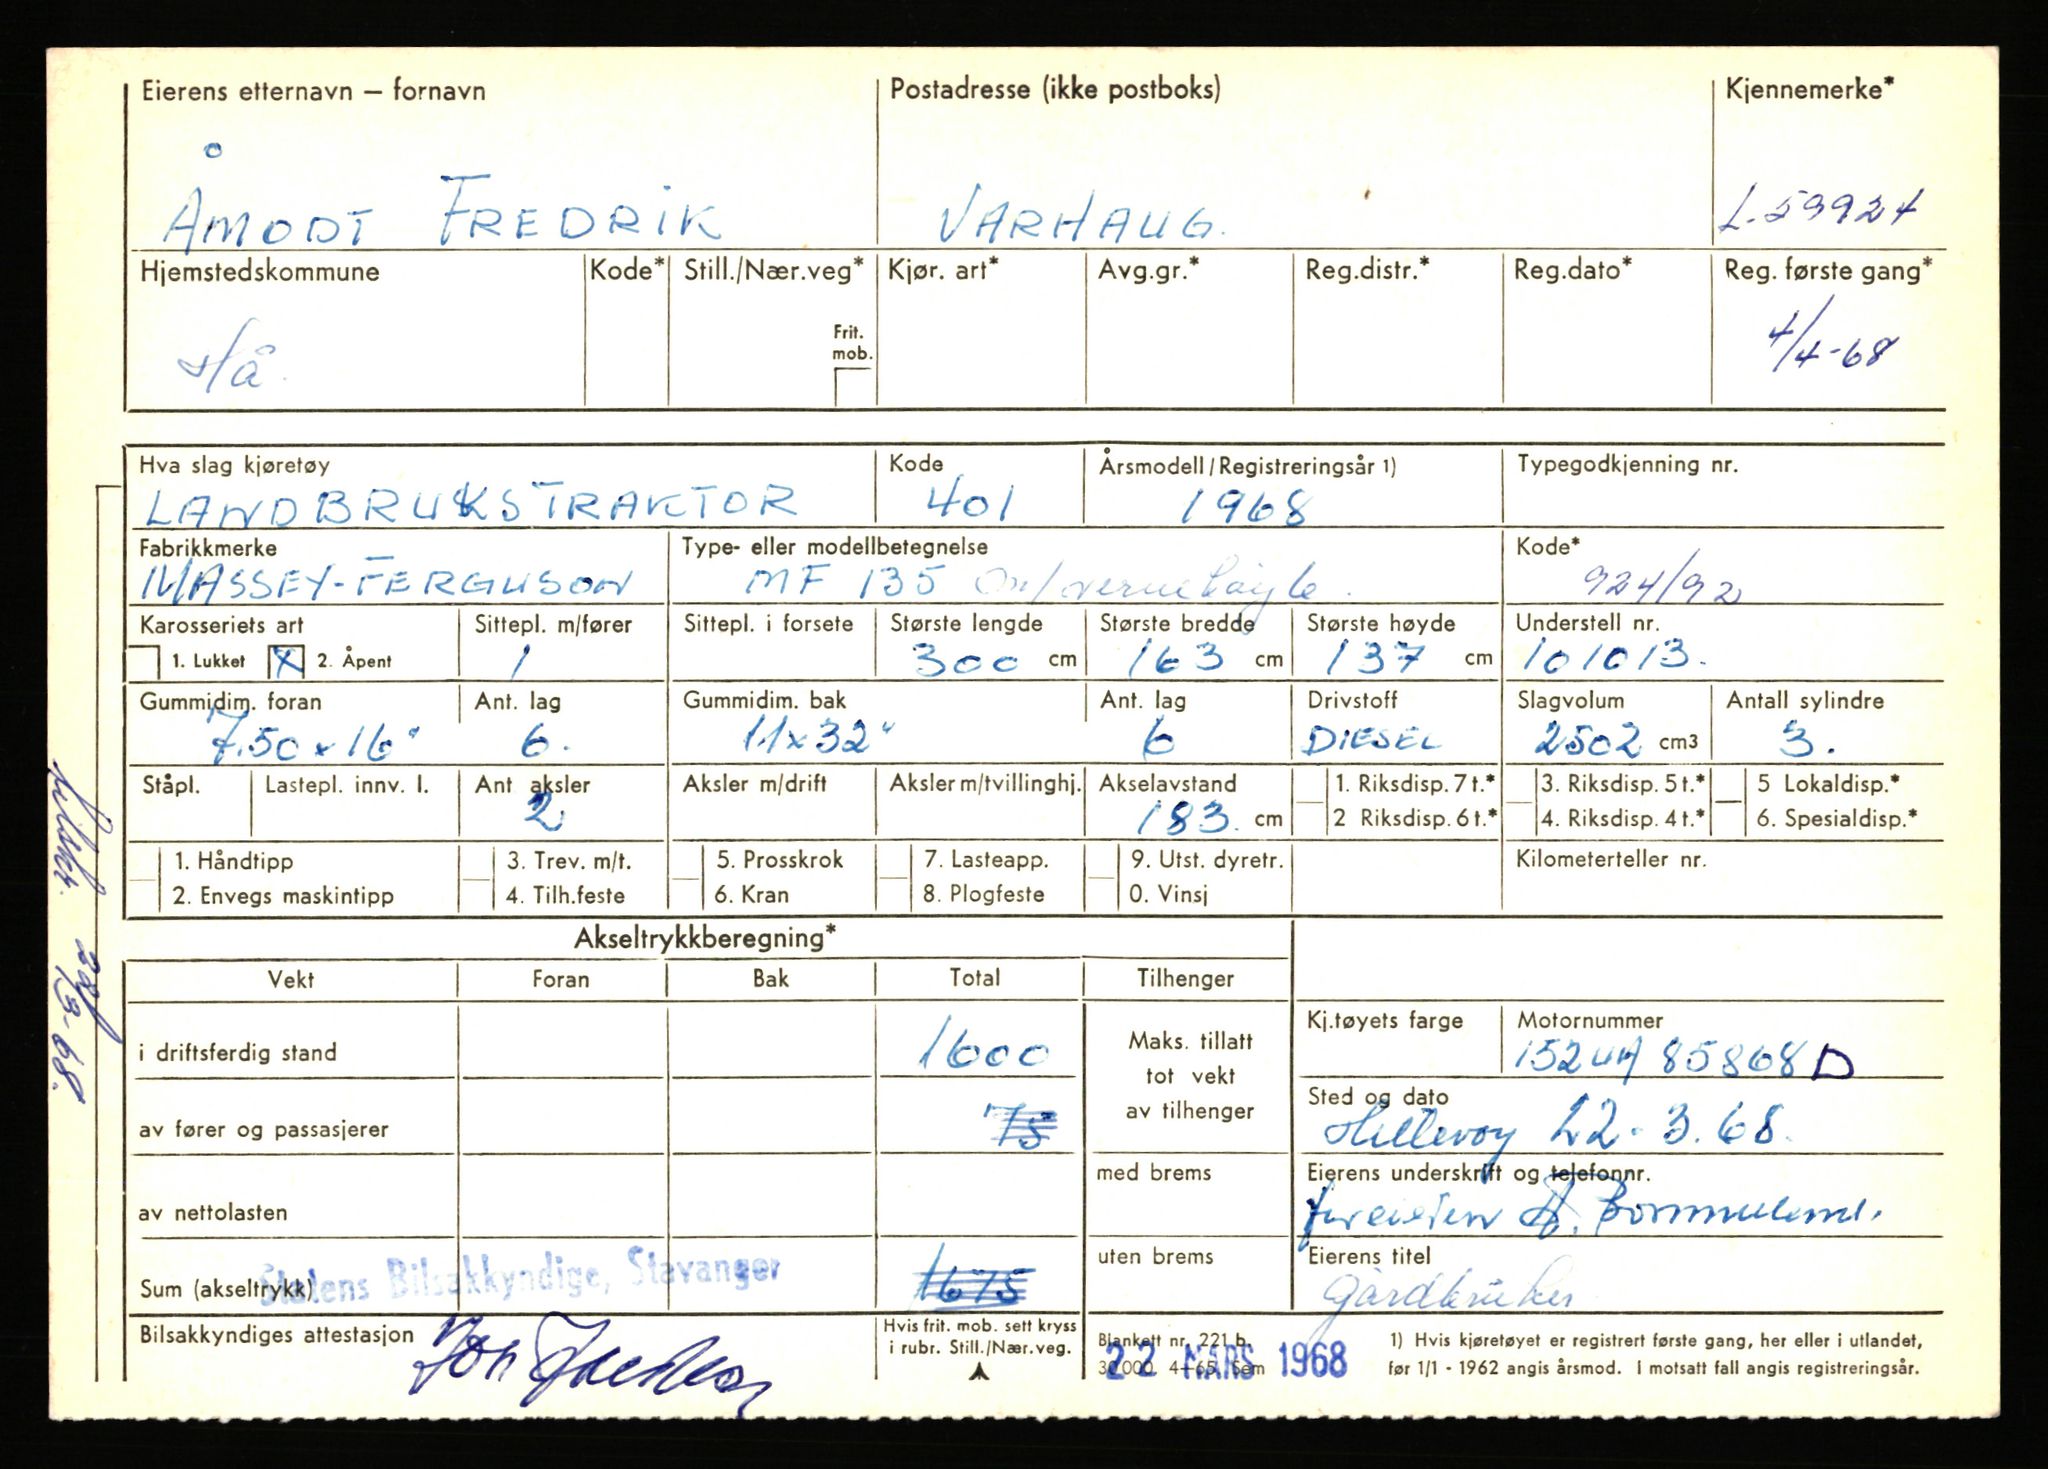 Eierens etternavn – fornavn
Postadresse (ikke postboks)
Kjennemerke*
ÅMODT FREDRIK
VARHAUG.
L.59924
Hjemstedskommune
Kode*
Still./Nær.veg*
Kjør. art*
Avg.gr.*
Reg.distr.*
Reg.dato*
Reg. første gang*
Frit.
mob.
Hå.
4/4-68
Hva slag kjøretøy
Kode
Årsmodell/Registreringsår 1)
Typegodkjenning nr.
LANDBRUKSTRAKTOR
401
1968
Fabrikkmerke
Type- eller modellbetegnelse
Kode*
MASSEY-FERGUSON
MF 135 m/vernebøyle.
924/92
Karosseriets art
Sittepl. m/fører
Sittepl. i forsete
Største lengde
Største bredde
Største høyde
Understell nr.
1. Lukket X 2. Åpent
1
300 cm
163 cm
137 cm
101013.
Gummidim. foran
Ant. lag
Gummidim. bak
Ant. lag
Drivstoff
Slagvolum
Antall sylindre
7.50 x 16"
6.
11x32"
6
DIESEL
2502 cm3
3.
Ståpl.
Lastepl. innv. l.
Ant aksler
Aksler m/drift
Aksler m/tvillinghj.
Akselavstand
1. Riksdisp. 7 t.*
3. Riksdisp. 5 t.*
5 Lokaldisp.*
2
183. cm
2 Riksdisp. 6 t.*
4. Riksdisp. 4 t.*
6. Spesialdisp.*
1. Håndtipp
3. Trev. m/t.
5. Prosskrok
7. Lasteapp.
9. Utst. dyretr.
Kilometerteller nr.
2. Envegs maskintipp
4. Tilh.feste
6. Kran
8. Plogfeste
0. Vinsj
Akseltrykkberegning*
Vekt
Foran
Bak
Total
Tilhenger
i driftsferdig stand
1600
Maks. tillatt
tot vekt
av tilhenger
Kj.tøyets farge
Motornummer
152UA 85868D
av fører og passasjerer
75
Sted og dato
Hillevåg 22-3.68.
av nettolasten
med brems
Eierens underskrift og telefonnr.
Sum (akseltrykk)
Statens Bilsakkyndige, Stavanger
1675
uten brems
Eierens titel
Gårdbruker
Bilsakkyndiges attestasjon
Hvis frit. mob. sett kryss
i rubr. Still./Nær.veg.
Blankett nr. 221 b.
30.000 4–65. Sem
22 MARS 1968
1) Hvis kjøretøyet er registrert første gang, her eller i utlandet,
før 1/1 - 1962 angis årsmod. I motsatt fall angis registreringsår.
28/3-68.